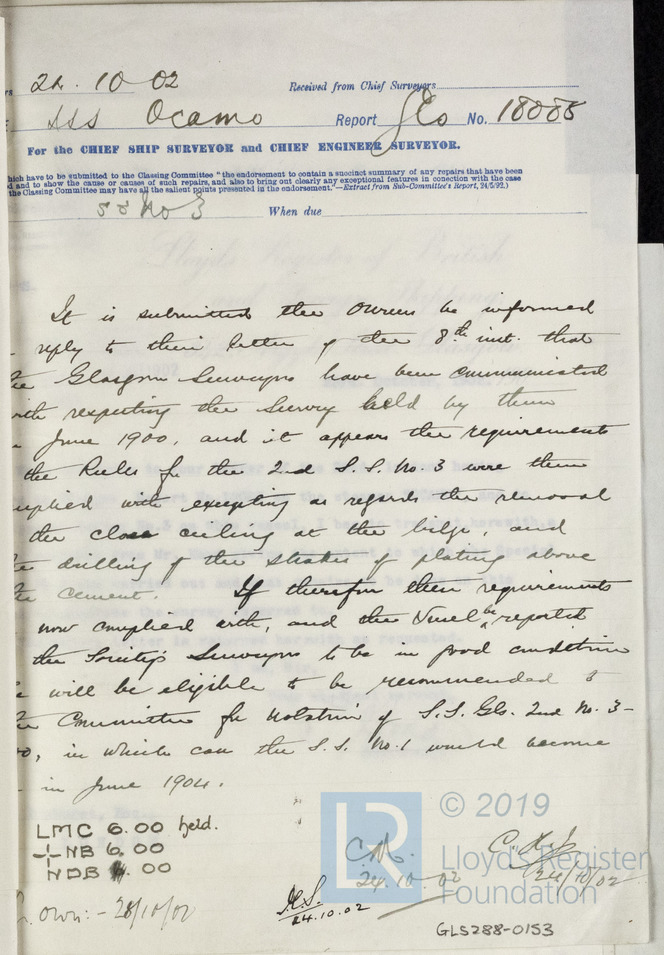 24.10.02 Received from Chief Surveyors
SSS Ocamo Report Glo No. 18088
For the CHIEF SHIP SURVEYOR and CHIEF ENGINEER SURVEYOR.
hich have to be submitted to the Classing Committee "the endorsement to contain a succinct summary of any repairs that have been
d and to show the cause or causes of such repairs, and also to bring out clearly any exceptional features in conection with the case
the Classing Committee may have all the salient points presented in the endorsement."—Extract from Sub-Committee's Report, 24/5/92.)
SS No 3 When due
It is submitted the Owners be informed
reply to their letter of the 8th inst. that
Glasgow Surveyors have been communicated
with respecting the Survey held by them
June 1900, and it appears the requirements
the Rules for the 2nd S.S. No. 3 were then
mplied with excepting as regards the removal
the close ceiling at the bilge, and
drilling of the strakes of plating above
cement. If therefore these requirements
now complied with, and the Vessel be reported
the Society's Surveyors to be in good condition
will be eligible to be recommended to
Committee for notation of S.S. Gls. 2nd No. 3-
00, in which case the S.S. No. 1 would become
in June 1904.
LMC 6.00 held.
NB 6.00
NDB 00
Own:- 28/10/02
C.M.
24.10.02
J.C.S.
24.10.02
24/10/02
LR
© 2019
Lloyd's Register
Foundation
GLS288-0153